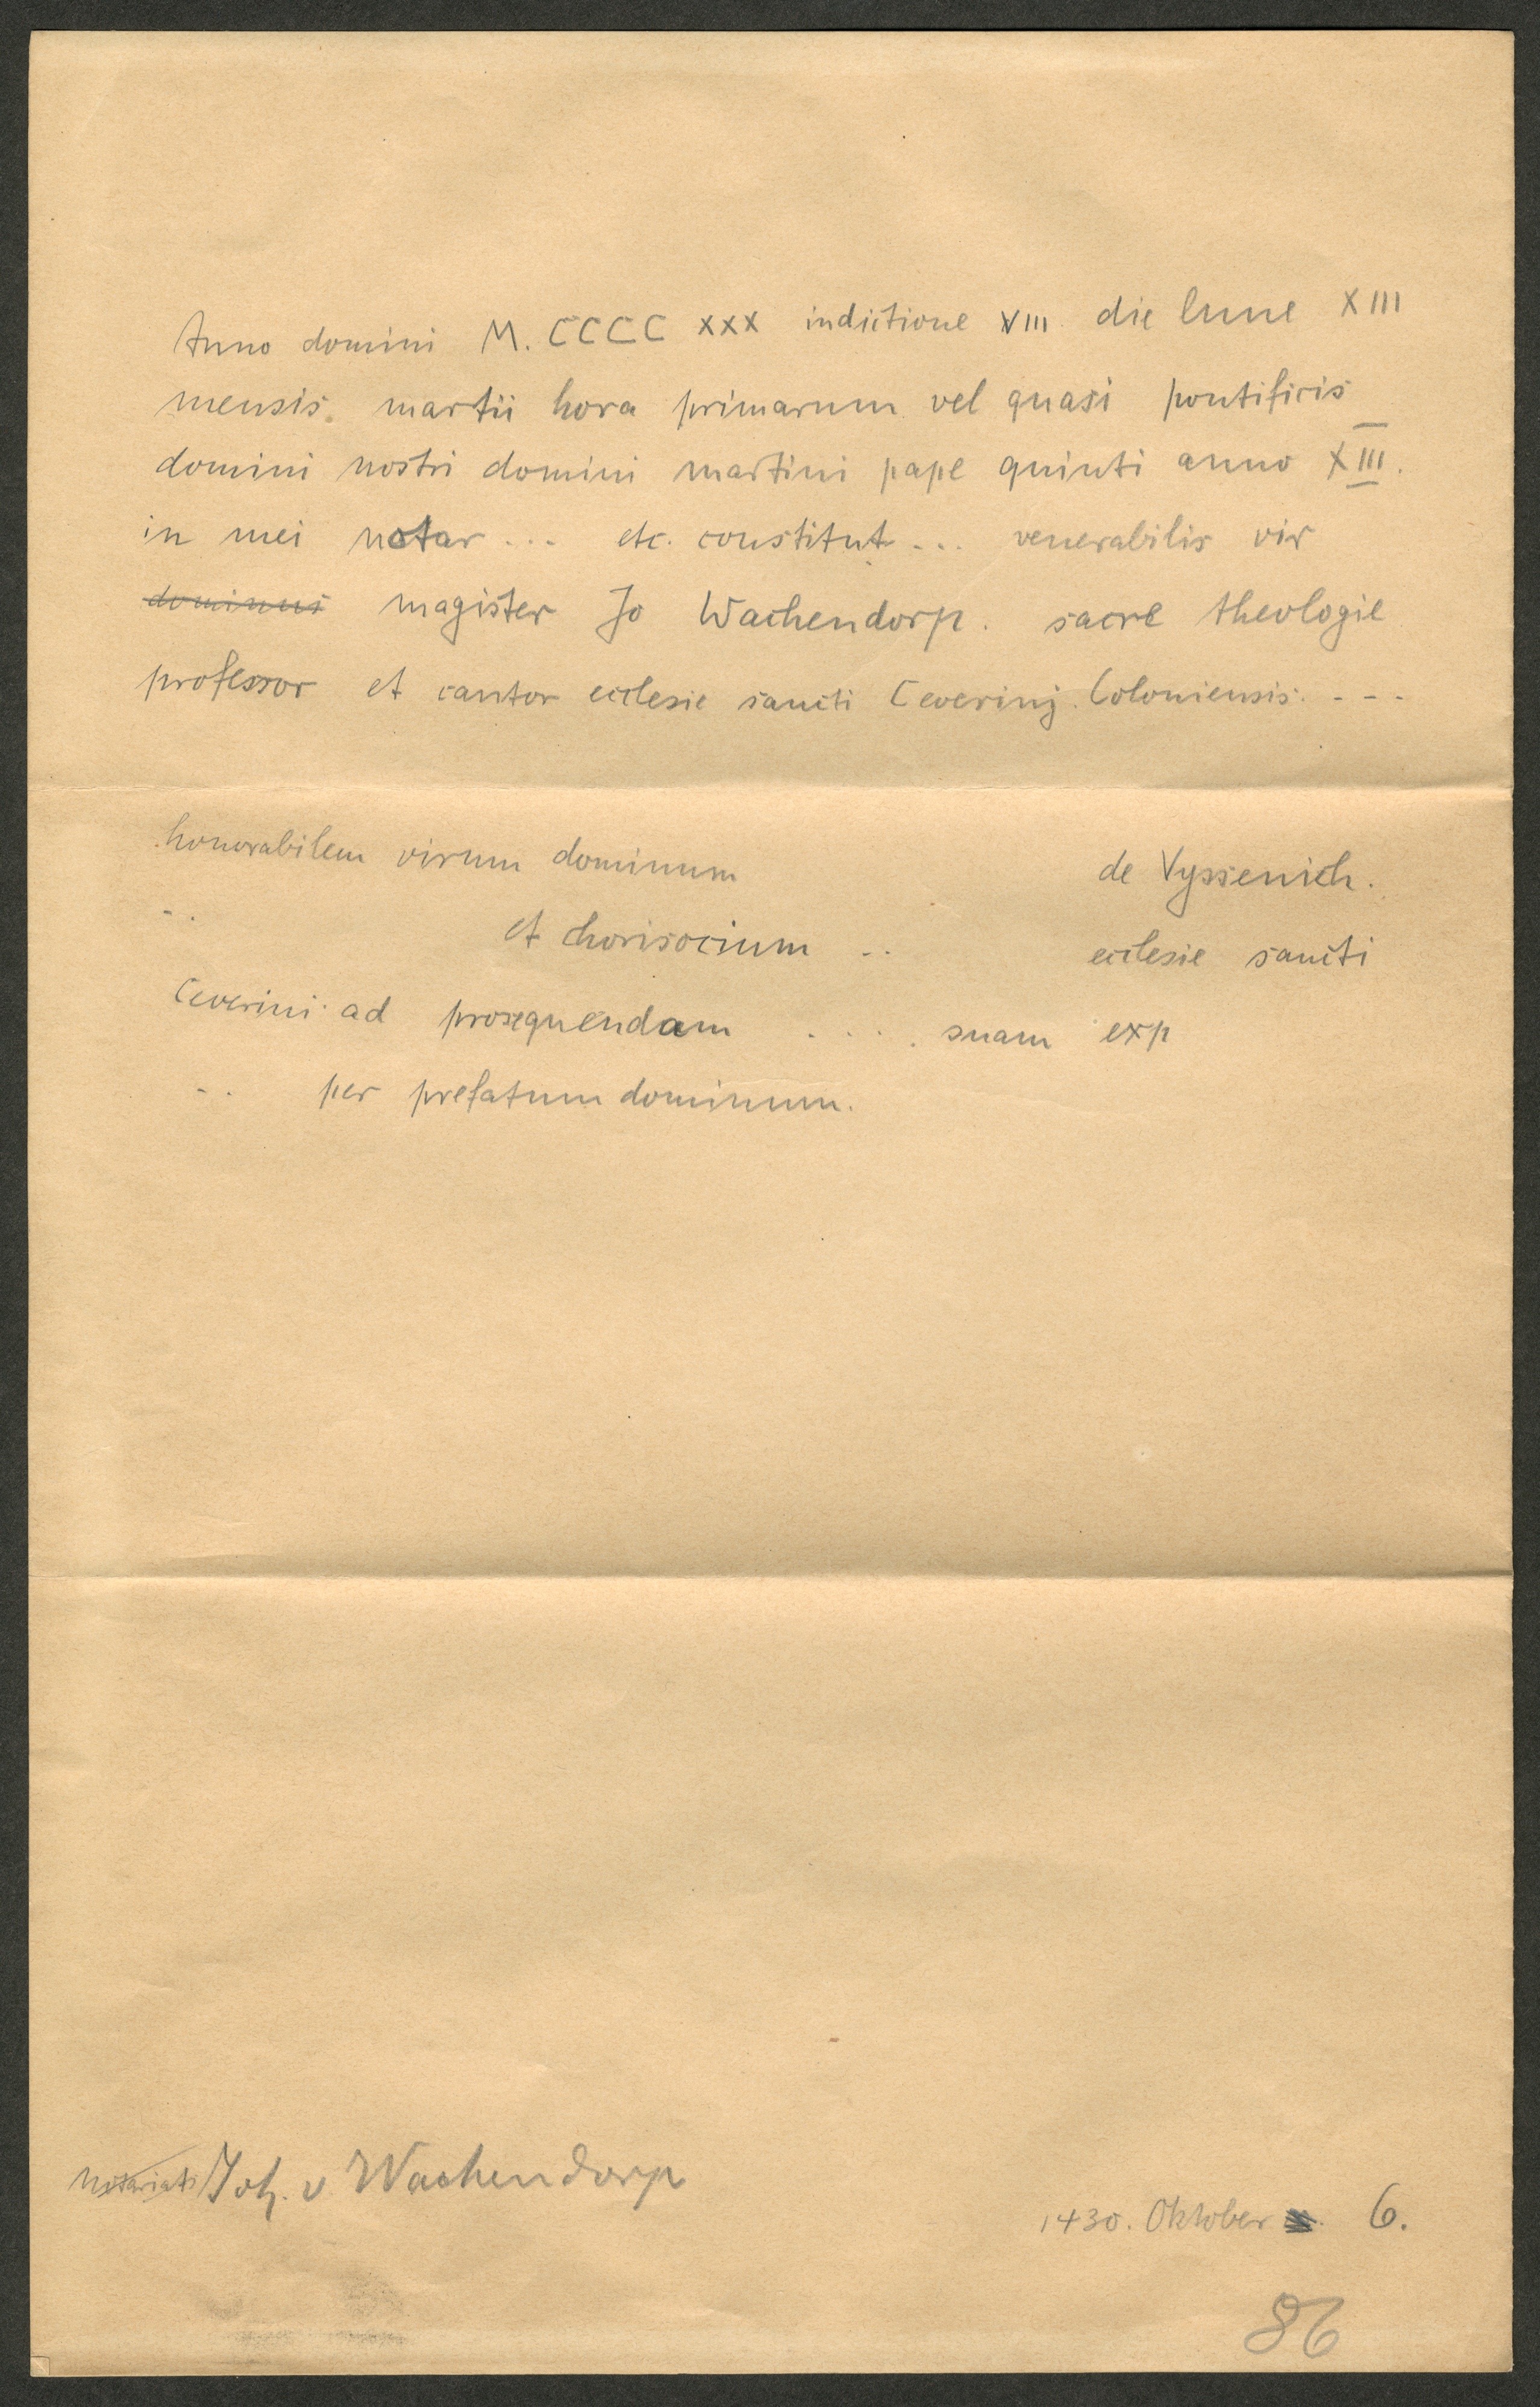 Anno domini M. CCCC XXX indictione VIII die lune XIII
mensis martii hora primarum vel quasi pontificis
domini nostri domini martini pape quinti anno XIII.
in mei notar ... etc. constitut ... venerabilis vir
dominus magister Jo Wachendorp. sacre theologie
professor et cantor ecclesie sancti Ceverinj. Coloniensis. - - -
honorabilem virum dominum de Vyssenich.
.. et chorisocium .. ecclesie sancti
Ceverini ad prosequendam .... suam exp
.. per prefatum dominum.
notariats Joh. v Wachendorp
1430. Oktober 6.
86